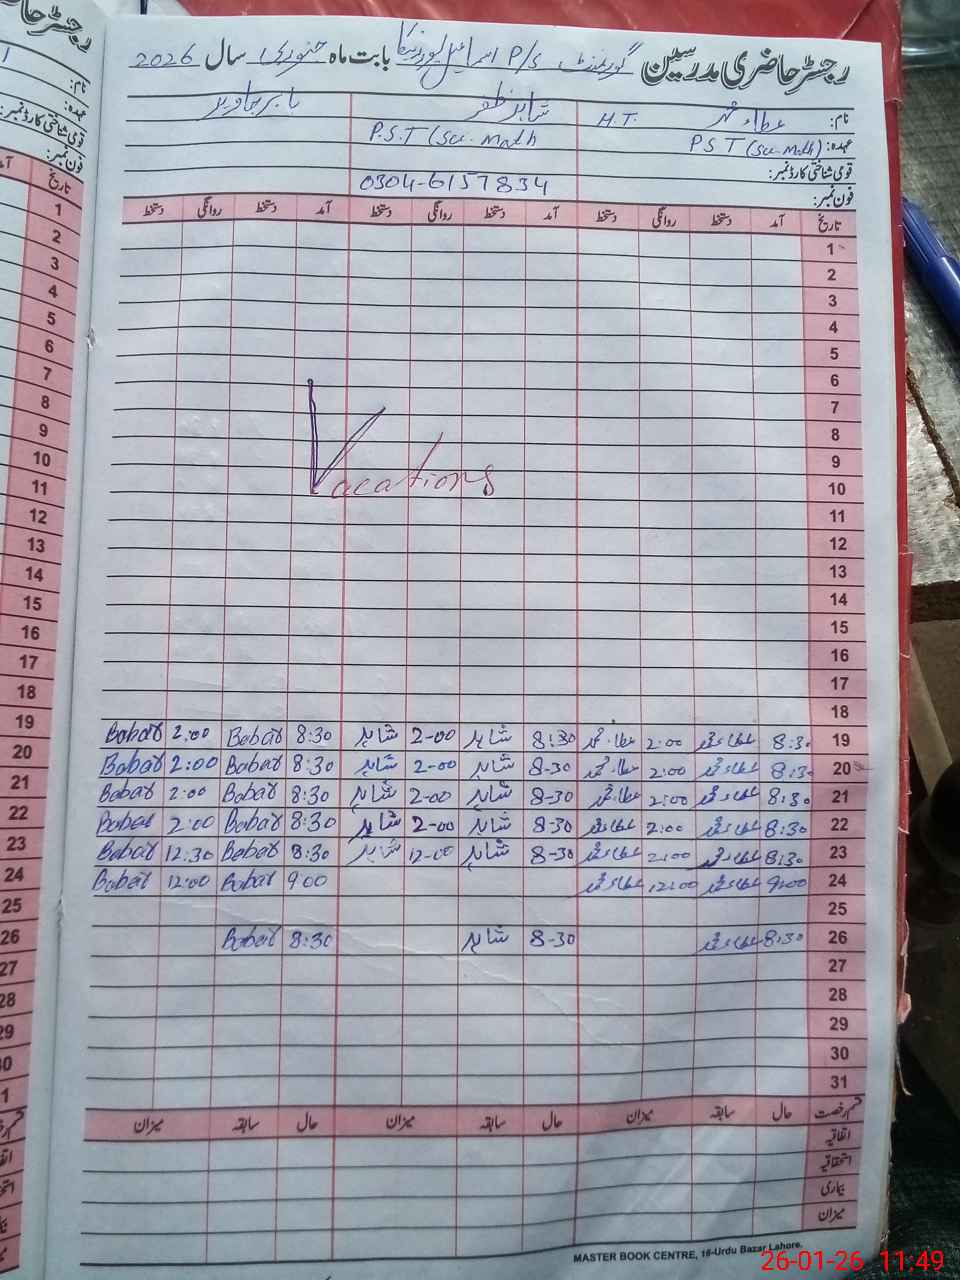 رجسٹر حاضری مدرسین گورنمنٹ P/S بابت ماہ جنوری سال 2026
نام: عطاء محمد H.T. شاہد ظفر بابر جاوید
عہدہ: P S T (Sci-Math) P.S.T (Sci-Math
قومی شناختی کارڈ نمبر:
فون نمبر: 0304-6157834
تاریخ آمد دستخط روانگی دستخط آمد دستخط روانگی دستخط آمد دستخط روانگی دستخط
1
2
3
4
5
6
7
8
9
10
Vacations
11
12
13
14
15
16
17
18
19 8:30 عطاء محمد 2:00 عطاء محمد 8:30 شاہد 2-00 شاہد 8:30 Babar 2:00 Babar
20 8:30 عطاء محمد 2:00 عطاء محمد 8-30 شاہد 2-00 شاہد 8:30 Babar 2:00 Babar
21 8:30 عطاء محمد 2:00 عطاء محمد 8-30 شاہد 2-00 شاہد 8:30 Babar 2:00 Babar
22 8:30 عطاء محمد 2:00 عطاء محمد 8-30 شاہد 2-00 شاہد 8:30 Babar 2:00 Babar
23 8:30 عطاء محمد 2:00 عطاء محمد 8-30 شاہد 12-00 شاہد 8:30 Babar 12:30 Babar
24 9:00 عطاء محمد 12:00 عطاء محمد 9:00 Babar 12:00 Babar
25
26 8:30 عطاء محمد 8-30 شاہد 8:30 Babar
27
28
29
30
31
قسم رخصت حال سابقہ میزان حال سابقہ میزان حال سابقہ میزان
اتفاقیہ
استحقاقیہ
بیماری
میزان
MASTER BOOK CENTRE, 16-Urdu Bazar Lahore.
26-01-26 11:49